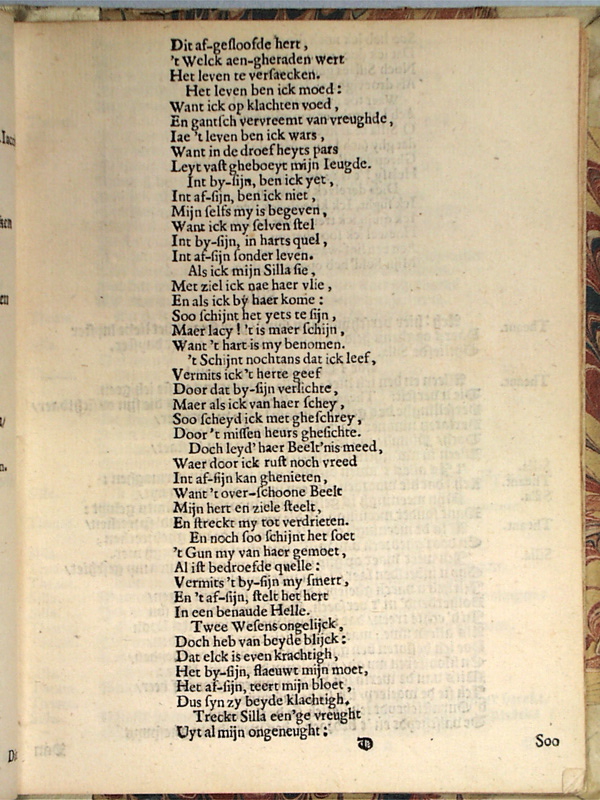 Dit af-gesloofde hert,
't Welck aen-gheraden wert
Het leven te versaecken.
Het leven ben ick moed:
Want ick op klachten voed,
En gantsch vervreemt van vreughde,
Iae 't leven ben ick wars,
Want in de droef heyts pars
Leyt vast gheboeyt mijn Ieugde.
Int by-sijn, ben ick yet,
Int af-sijn, ben ick niet,
Mijn selfs my is begeven,
Want ick my selven stel
Int by-sijn, in harts quel,
Int af-sijn sonder leven.
Als ick mijn Silla sie,
Met ziel ick nae haer vlie,
En als ick by haer kome:
Soo schijnt het yets te sijn,
Maer lacy! 't is maer schijn,
Want 't hart is my benomen.
't Schijnt nochtans dat ick leef,
Vermits ick 't herte geef
Door dat by-sijn verlichte,
Maer als ick van haer schey,
Soo scheyd ick met gheschrey,
Door 't missen heurs ghesichte.
Doch leyd' haer Beelt'nis meed,
Waer door ick rust noch vreed
Int af-sijn kan ghenieten,
Want 't over-schoone Beelt
Mijn hert en ziele steelt,
En streckt my tot verdrieten.
En noch soo schijnt het soet
't Gun my van haer gemoet,
Al ist bedroefde quelle:
Vermits 't by-sijn my smert,
En 't af-sijn, stelt het hert
In een benaude Helle.
Twee Wesens ongelijck,
Doch heb van beyde blijck:
Dat elck is even krachtigh,
Het by-sijn, flaeuwt mijn moet,
Het af-sijn, teert mijn bloet,
Dus syn zy beyde klachtigh.
Treckt Silla een'ge vreught
Uyt al mijn ongeneught:
Soo